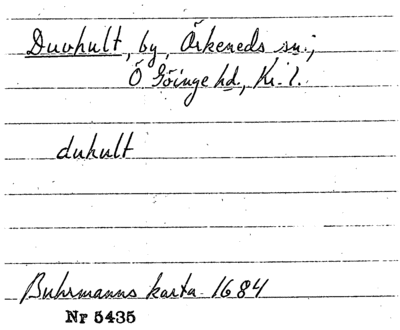 Duvhult, by, Örkeneds sn.;
Ö Göinge hd, Kr. l.
duhult
Buhrmanns karta 1684
Nr 5435